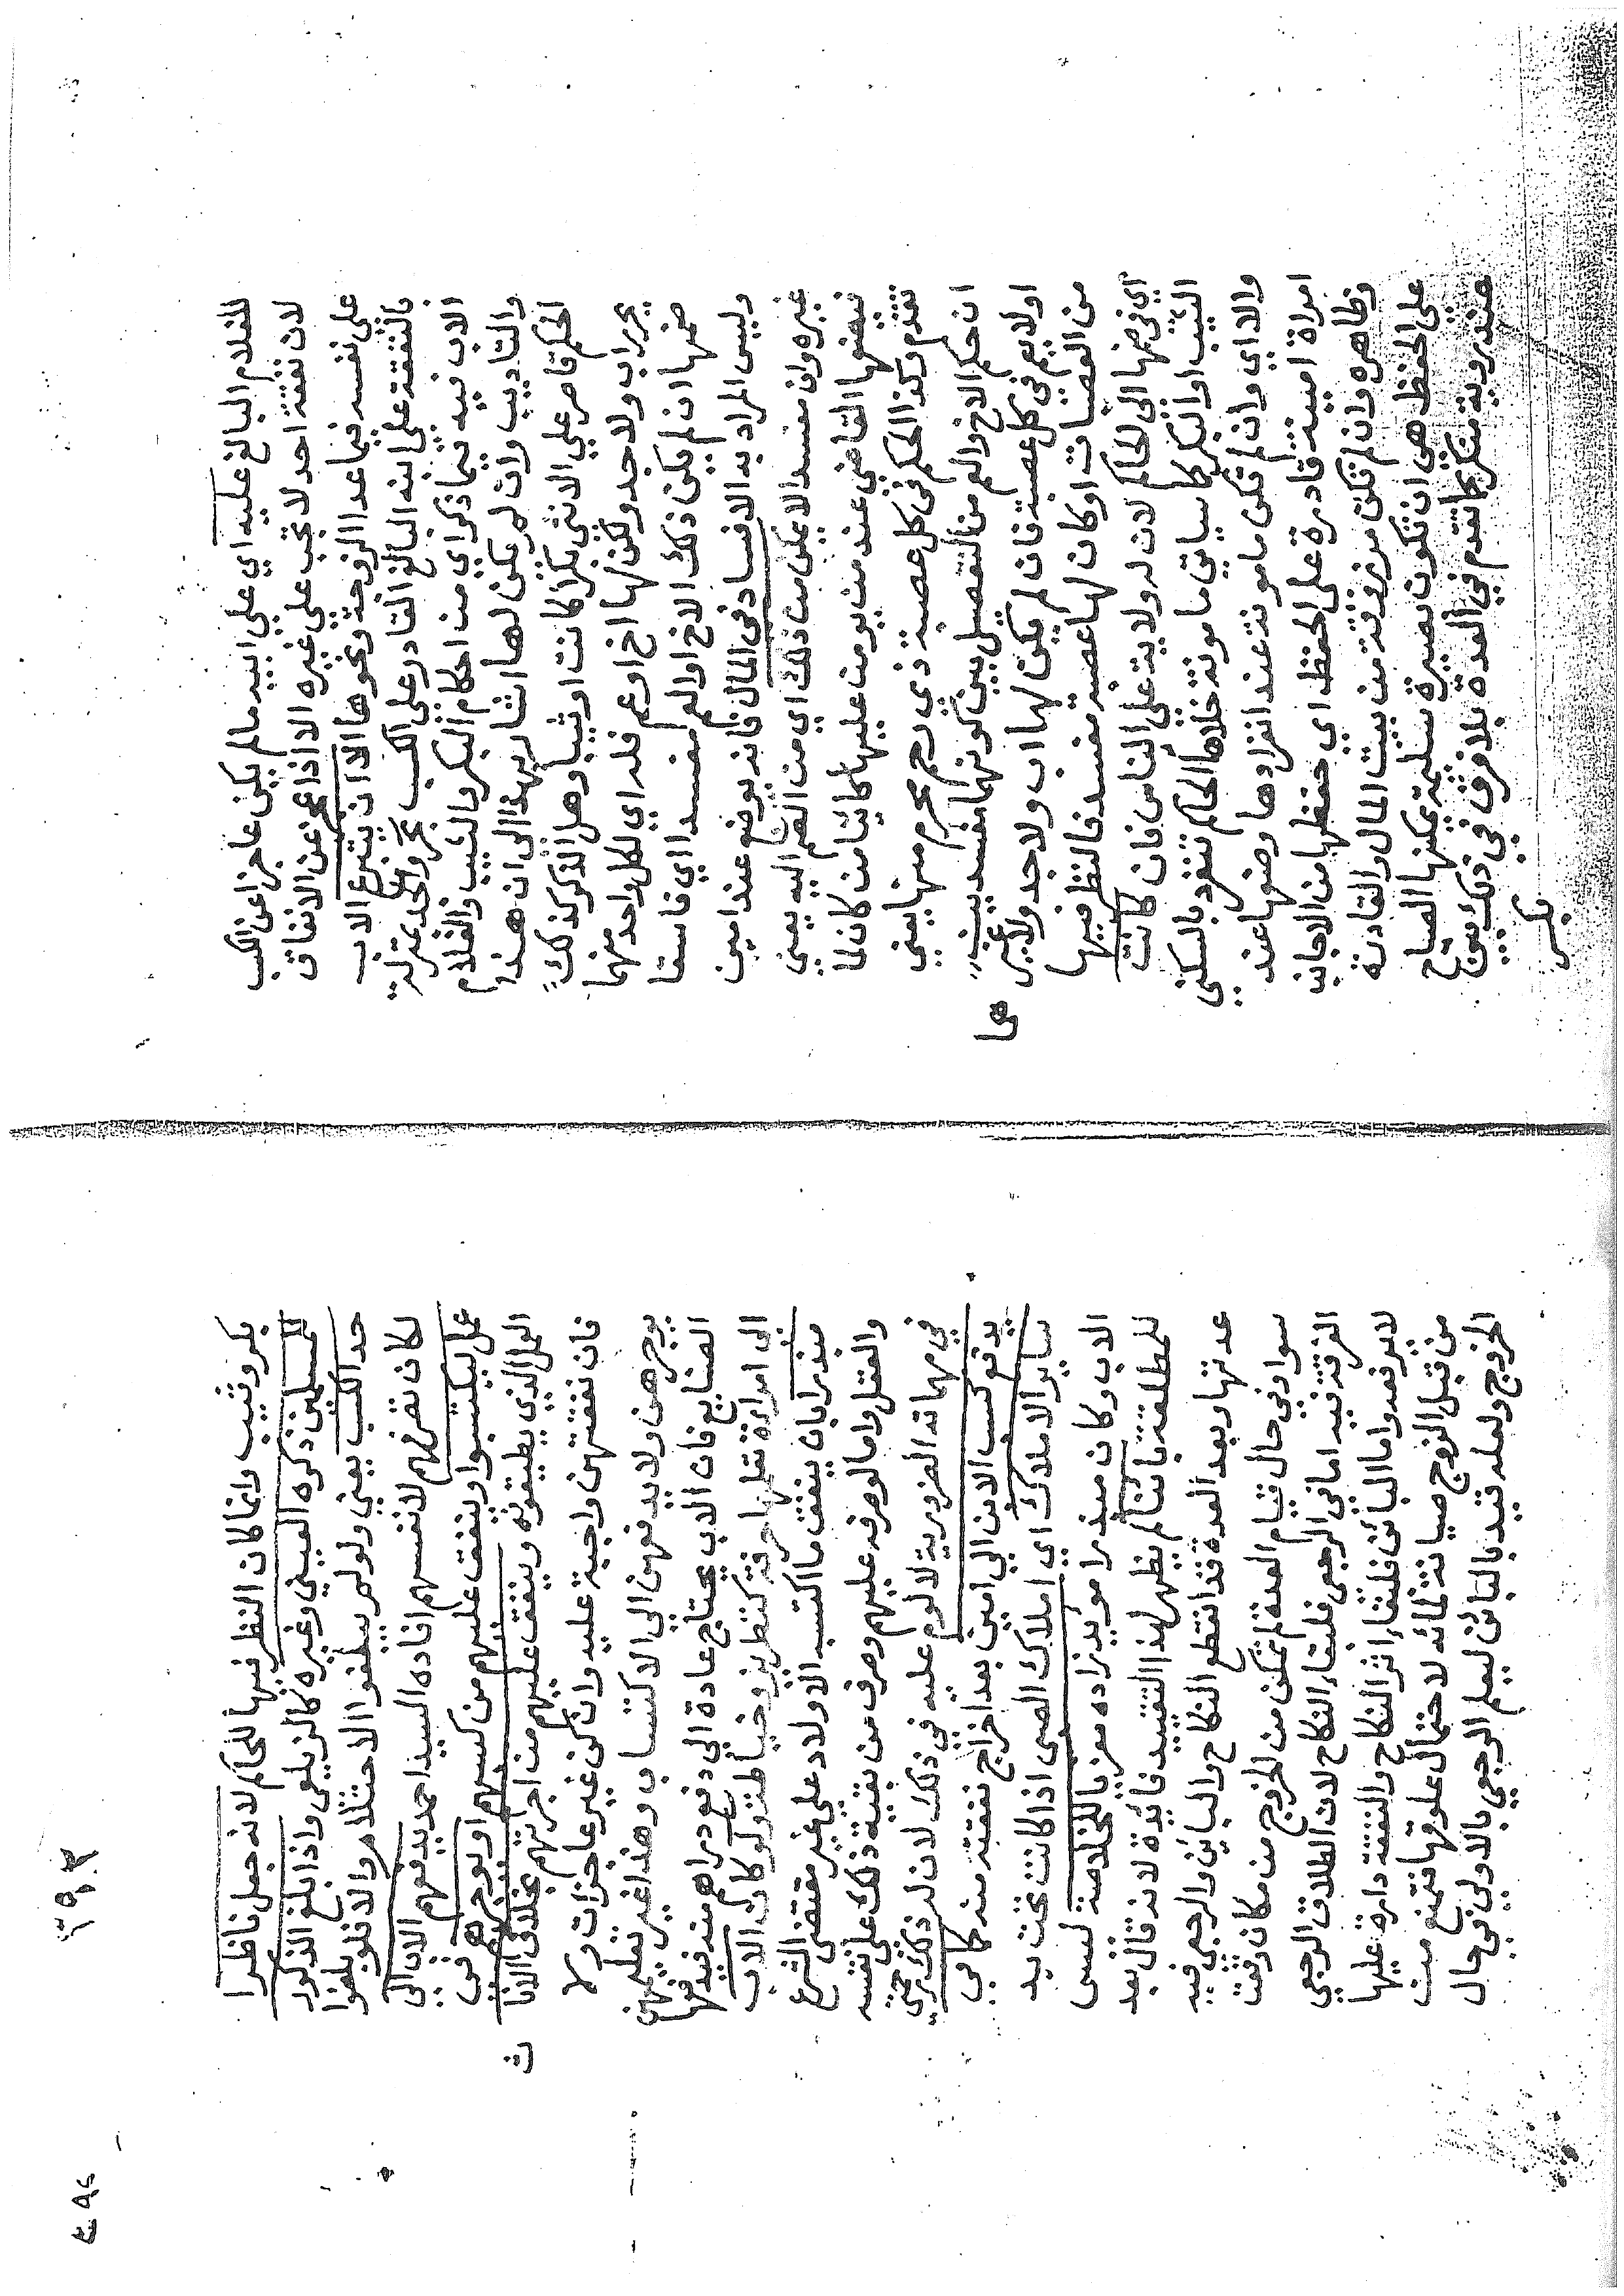 للغلام البالغ عليه اي علي ابيه مالم يكن عاجزا عن الكسب
لان نفقة احد لا تجب علي غيره الا اذا عجز عن الانفاق
علي نفسه فيما عدا الزوجة ونحوها الا ان يتبرع الاب
بالنفقة علي ابنه البالغ القادر علي الكسب بحر والجد بمنزلة
الاب فيه فيما ذكر اي من احكام البكر والثيب والغلام
والتاديب وان لم يكن لها اشار بهذا الي ان هذا
الحكم قاصر علي الانثي بكرا كانت او ثيبا وهل الذكر كذلك
يحرر اب ولا جد ولكن لها اخ او عم فله اي لكل واحد منهما
ضمها ان لم يكن ذلك الاخ او العم مفسدا اي فاسقا
وليس المراد به الافساد في المال فانه يوضع عند امين
غيره وان مفسدا لا يمكن من ذلك اي من الضم اليه يعني
فيضعها القاضي عند من يومن عليها كائنا من كان لما
تقدم وكذا الحكم في كل عصبة ذي رحم محرم منها يعني
ان حكم الاخ والعم من التفصيل بين كونهما مفسدين
اولا يعم في كل عصبة فان لم يكن لها اب ولا جد ولا غير
هما
من العصبات او كان لها عصبة مفسد فالنظر فيها
اي في ضمها الي الحاكم لان له ولاية علي الناس فان كانت
الثيب او البكر كما سياتي مامونة خلاها الحاكم تنفرد بالسكني
والا اي وان لم تكن مامونة عند انفرادها وضعها عند
امراة امينة قادرة علي الحفظ اي حفظها من الاجانب
وظاهره وان لم تكن مرزوقة من بيت المال والقادرة
علي الحفظ هي ان تكون بصيرة سليمة يمكنها الصياح
عند روية منكر كما تقدم في العدة بلا فرق في ذلك بين
بكر
٣٩٣
بكر وثيب وانما كان النظر فيها للحاكم لانه جعل ناظرا
للمسلمين ذكره العيني وغيره كالزيلعي واذا بلغ الذكور
حد الكسب يعني ولو لم يبلغوا الاحتلام والا فلو بلغوا
لكان نفقتهم لانفسهم افاده السيد احمد يدفعهم الاب الي
عمل ليكتسبوا وينفق عليهم من كسبهم او يوجرهم في
العمل الذي يطيقونه وينفق عليهم من اجرتهم بخلاف الانا
ث
فان نفقتهن واجبة عليه وان كن غير عاجزات ولا
يوجرهن ولا يدفعهن الي الاكتساب وهذا غير تعليمهن
الصنايع فان الاب يحتاج عادة الي دفع دراهم منه فيدفعها
الي امراة تعلمها حرفة كتطريز وخياطة ولو كان الاب
مبذرا بان ينفق ما اكتسب الاولاد علي غير مقتضي الشرع
والعقل واما لو صرفه عليهم وصرف من بقية ذلك علي نفسه
في مهماته الضرورية لا لوم عليه في ذلك لان له ذلك
يدفع كسب الابن الي امين بعد اخراج نفقته منه كما في
ساير الاملاك اي املاك الصبي اذا كانت تحت يد
الاب وكان مبذرا مويد زاده معزيا للخلاصة ليس
للمطلقة بائنا لم يظهر لهذا التقييد فائدة لانه قال بعد
عدتها وبعد العدة قد انقطع النكاح والباين والرجعي فيه
سوا وفي حال قيام العدة لم تمكن من الخروج من مكان وقعت
الفرقة فيه اما في الرجعي فلبقاء النكاح لان الطلاق الرجعي
لا يرفعه واما البائن فلبقاء اثر النكاح والنفقة دارة عليها
من قبل الزوج صيانة لمائه لاحتمال علوقها فتمنع من
الخروج ولعله قيد بالبائن ليعلم الرجعي بالاولي في حال